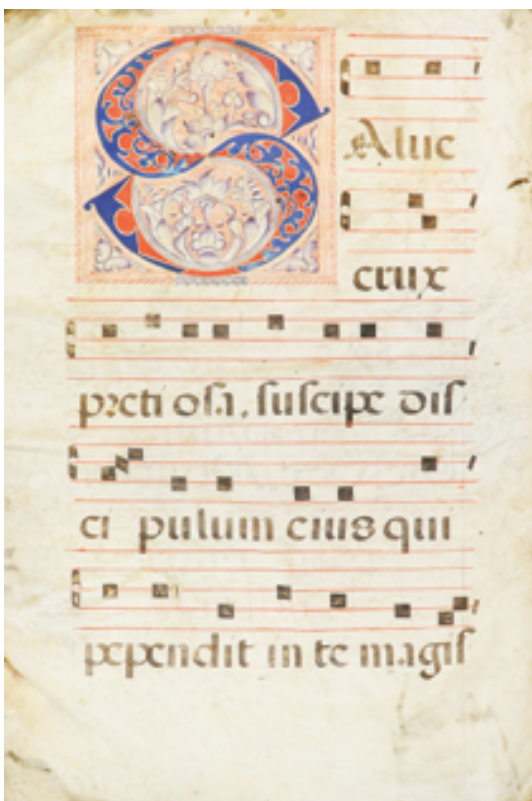 SAlve
crux
preti osa, suscipe dis
ci pulum eius qui
pependit in te magis